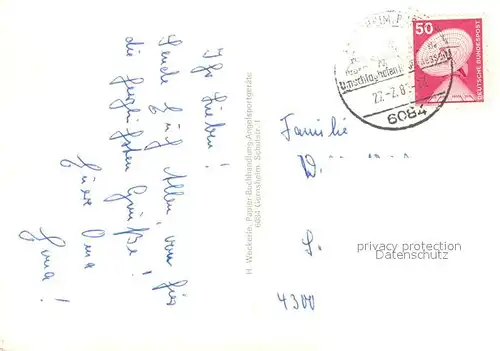 Ihr Lieben!
Sende Euch Allen, von hier
die herzlichsten Grüße!
Eure Oma
H. Weckerle, Papier-Buchhandlung-Angelsportgeräte
6084 Gernsheim Schulstr. 1
50
DEUTSCHE BUNDESPOST
Umschlaghafen
22.-2.8
6084
Familie
W.
S.
4300
privacy protection
Datenschutz